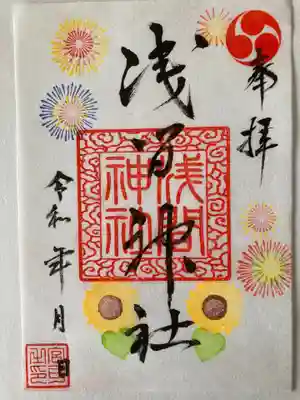 奉拝
浅间神社
浅間神社
令和 年 月 日